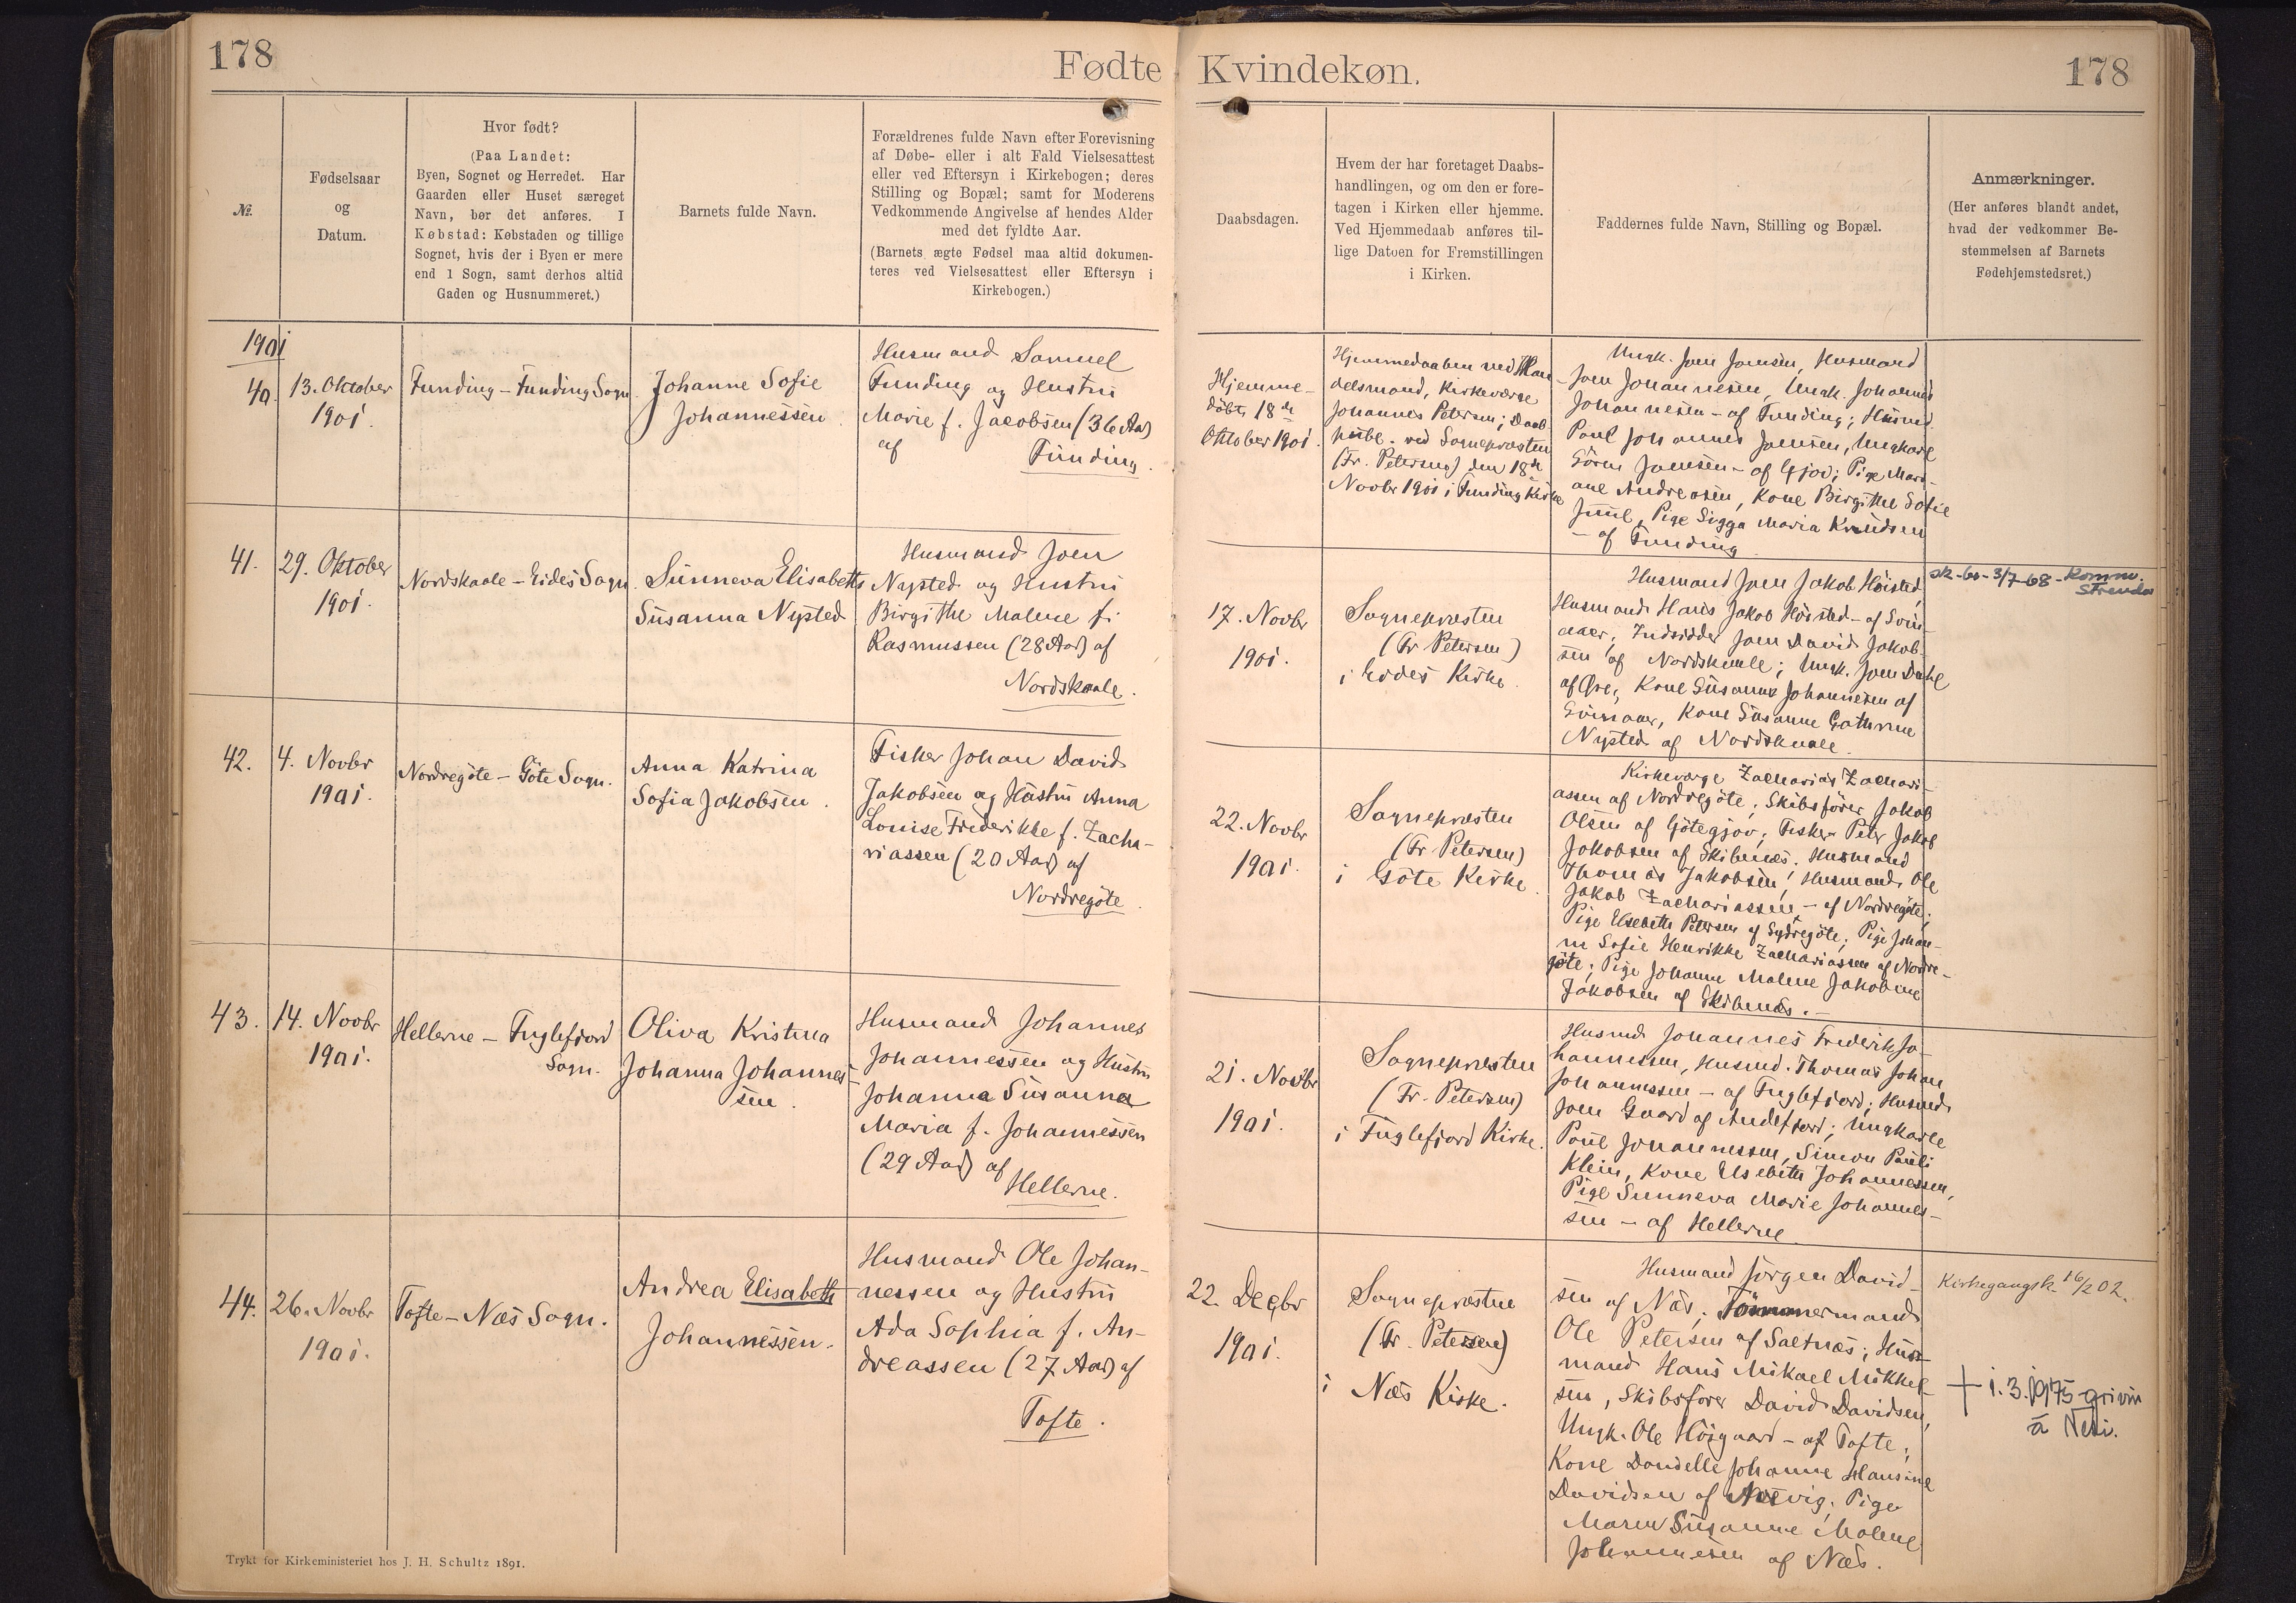 178
Fødte
Kvindekøn.
178
№.
Fødselsaar
og
Datum.
Hvor født?
(Paa Landet:
Byen, Sognet og Herredet. Har
Gaarden eller Huset særeget
Navn, bør det anføres. I
Købstad: Købstaden og tillige
Sognet, hvis der i Byen er mere
end 1 Sogn, samt derhos altid
Gaden og Husnummeret.)
Barnets fulde Navn.
Forældrenes fulde Navn efter Forevisning
af Døbe- eller i alt Fald Vielsesattest
eller ved Eftersyn i Kirkebogen; deres
Stilling og Bopæl; samt for Moderens
Vedkommende Angivelse af hendes Alder
med det fyldte Aar.
(Barnets ægte Fødsel maa altid dokumen-
teres ved Vielsesattest eller Eftersyn i
Kirkebogen.)
Daabsdagen.
Hvem der har foretaget Daabs-
handlingen, og om den er fore-
tagen i Kirken eller hjemme.
Ved Hjemmedaab anføres til-
lige Datoen for Fremstillingen
i Kirken.
Faddernes fulde Navn, Stilling og Bopæl.
Anmærkninger.
(Her anføres blandt andet,
hvad der vedkommer Be-
stemmelsen af Barnets
Fødehjemstedsret.)
1901
40.
13. Oktober
1901.
Funding - Funding Sogn.
Johanne Sofie
Johannessen
Husmand Samuel
Funding og Hustru
Marie f. Jacobsen (36 Aar)
af
Funding.
Hjemme-
døbt, 18de
Oktober 1901.
Hjemmedaaben ved Han-
delsmand, Kirkeværge
Johannes Petersen; Daab
publ. ved Sognepræsten
(Fr. Petersen) den 18de
Novbr 1901 i Funding Kirke
Ungk. Joen Joensen, Husmand
Joen Johannesen, Ungk. Johannes
Johannesen - af Funding; Husmd.
Poul Johannes Joensen, Ungkarl
Sören Joensen - af Gjov; Pige Mari-
ane Andreasen, Kone Birgithe Sofie
Juul, Pige Sigga Maria Knudsen
- af Funding
41.
29. Oktober
1901.
Nordskaale - Eides Sogn.
Sunneva Elisabeth
Susanna Nysted
Husmand Joen
Nysted og Hustru
Birgithe Malene f.
Rasmussen (28 Aar) af
Nordskaale.
17. Novbr
1901.
Sognepræsten
(Fr Petersen)
i Eides Kirke.
Husmand Joen Jakob Höisted,
Husmand Hans Jakob Höisted - af Svin-
aaer; Indsidder Joen David Jakob-
sen af Nordskaale; Ungk. Joen Dahl
af Öre; Kone Susanna Johannesen af
Svinaaer, Kone Susanne Cathrine
Nysted af Nordskaale.
3/7-68 - Komm.
Strenda
42.
4. Novbr
1901.
Nordregöte - Göte Sogn.
Anna Katrina
Sofia Jakobsen.
Fisker Johan David
Jakobsen og Hustru Anna
Louise Frederikke f. Zacha-
riassen (20 Aar) af
Nordregöte.
22. Novbr
1901.
Sognepræsten
(Fr Petersen)
i Göte Kirke.
Kirkeværge Zacharias Zachari-
assen af Nordregöte; Skibsförer Jakob
Olsen af Götegjov; Fisker Peter Jakob
Jakobsen af Skibenæs; Husmand
Thomas Jakobsen, Husmand Ole
Jakob Zachariassen - af Nordregöte;
Pige Elsebeth Petersen af Sydregöte; Pige Johan-
ne Sofie Henrikke Zachariassen af Nordre-
göte; Pige Johanne Malene Jakobine
Jakobsen af Skibenæs.
43.
14. Novbr
1901.
Hellerne - Fuglefjord
Sogn.
Oliva Kristina
Johanna Johannes-
sen.
Husmand Johannes
Johannessen og Hustru
Johanna Susanna
Maria f. Johannessen
(29 Aar) af
Hellerne.
21. Novbr
1901.
Sognepræsten
(Fr. Petersen)
i Fuglefjord Kirke.
Husmd Johannes Frederik Jo-
hannessen, Husmd. Thomas Johan
Johannessen - af Fuglefjord; Husmd
Joen Gaard af Andefjord; Ungkarle
Poul Johannessen, Simon Pauli
Klein, Kone Elsebeth Johannessen,
Pige Sunneva Marie Johannes-
sen - af Hellerne.
44.
26. Novbr
1901.
Tofte - Næs Sogn.
Andrea Elisabeth
Johannessen.
Husmand Ole Johan-
nessen og Hustru
Ada Sophia f. An-
dreassen (27 Aar) af
Tofte.
22. Decbr
1901.
Sognepræsten
(Fr. Petersen)
i Næs Kirke.
Husmand Jörgen David-
sen af Næs; Tömmermand
Ole Petersen af Saltnæs; Hus-
mand Hans Mikael Mikkel-
sen, Skibsförer David Davidsen,
Ungk. Ole Högaard - af Tofte;
Kone Dandelle Johanne Hansine
Davidsen af Æsevig; Pige
Maren Susanne Malene
Johannesen af Næs.
Kirkegangsk. 16/2 02.
+ 1.3.1975 grivin
á Nesi.
Trykt for Kirkeministeriet hos J. H. Schultz 1891.